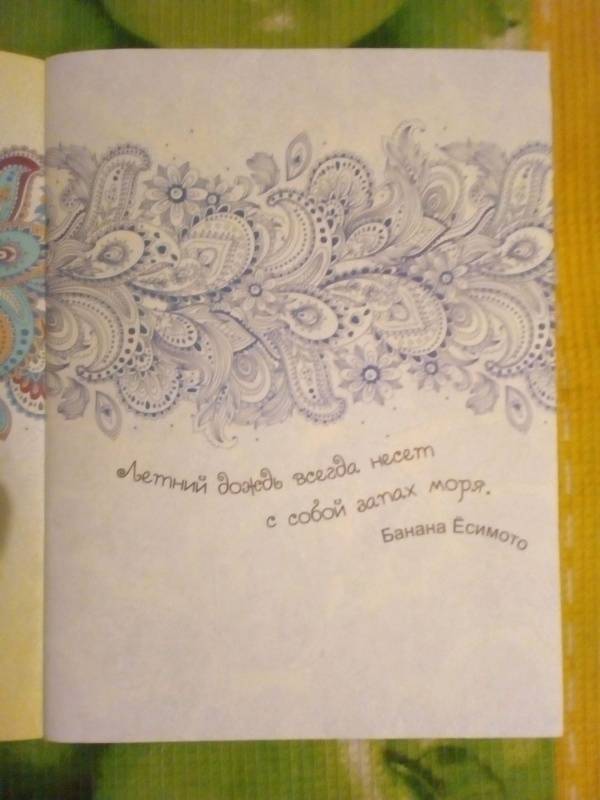 Летний дождь всегда несет
с собой запах моря.
Банана Ёсимото